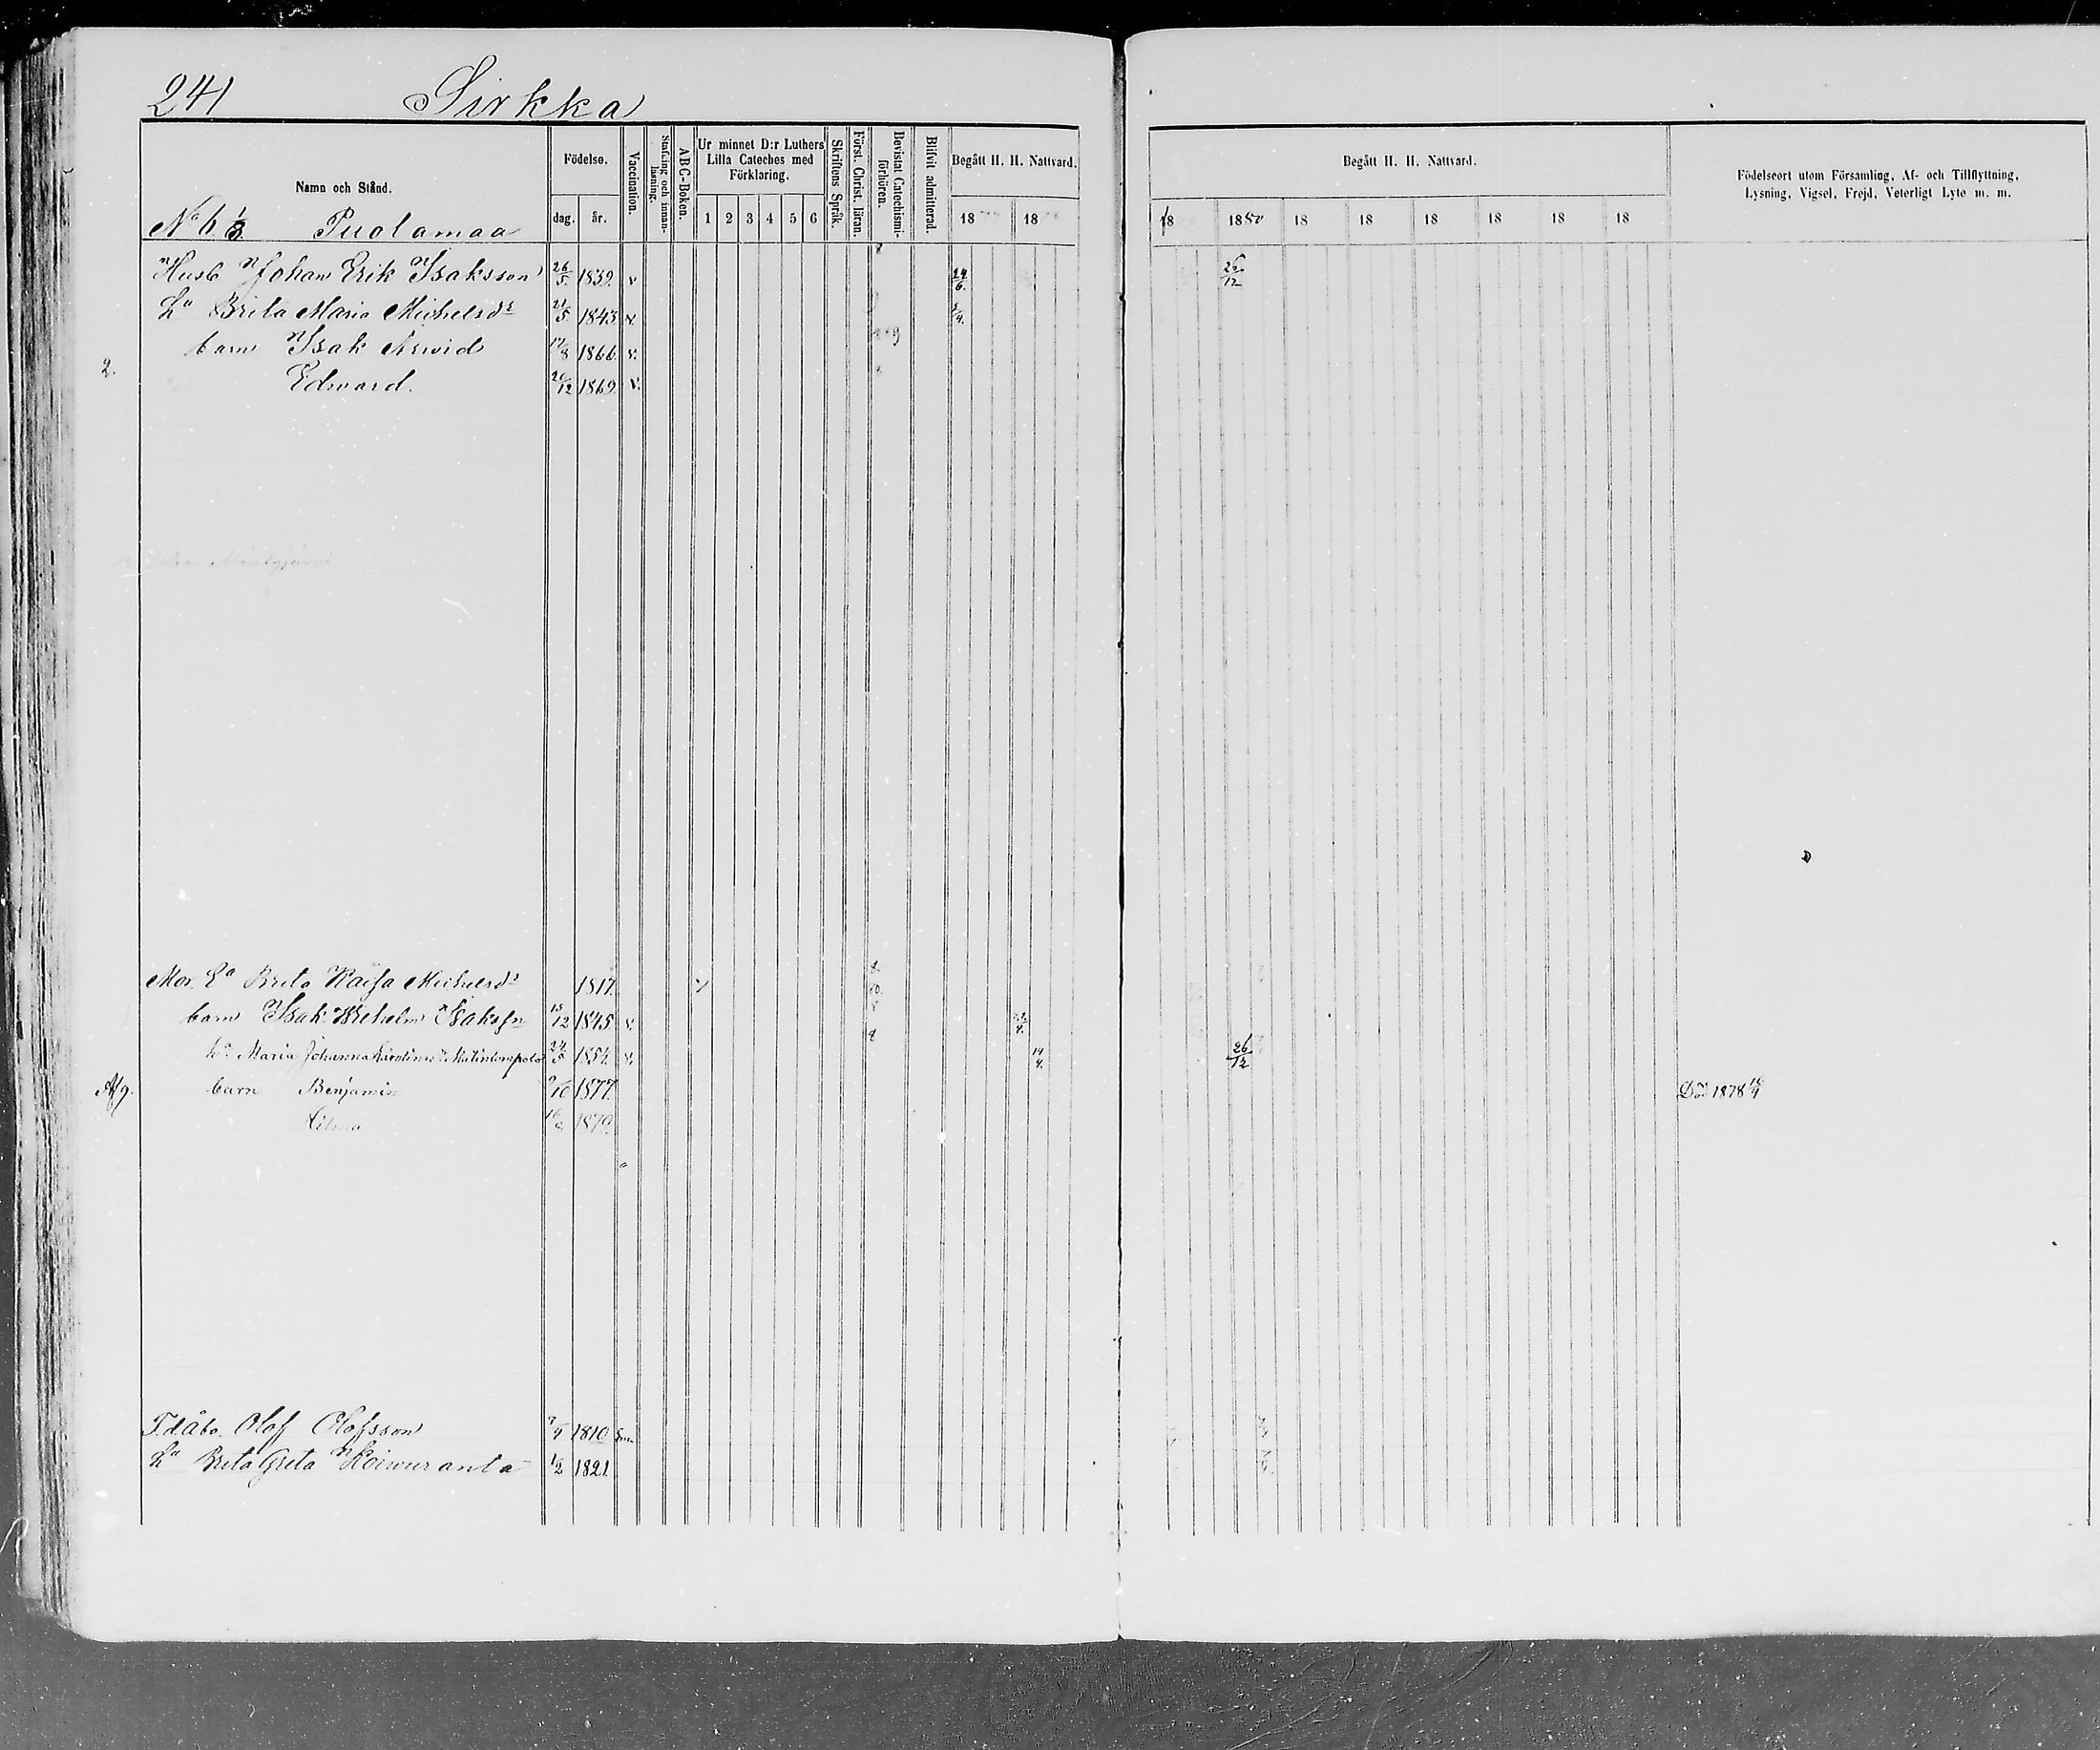 241 Sirkka
Namn och Stånd.
Födelse.
dag. år.
Vaccination.
Stafning och innanläsning.
ABC-Boken.
Ur minnet D:r Luthers Lilla Cateches med Förklaring.
1 2 3 4 5 6
Skriftens Språk.
Först. Christ. läran.
Bevistat Catechismiförhören.
Blifvit admitterad.
Begått H. H. Nattvard.
18 18
Begått H. H. Nattvard.
18 1880 18 18 18 18 18 18
Födelseort utom Församling, Af- och Tillflyttning,
Lysning, Vigsel, Frejd, Veterligt Lyte m. m.
No 6 Puolamaa
Husb Johan Erik Isaksson 26/5 1839. v 24/6. 26/12
hu Brita Maria Michelsdr 21/5 1843 v.
barn Isak Arwid 17/8 1866. v.
2. Edward. 20/12 1869 v.
Mor. Ea Brita Kaisa Michelsdr 1817.
barn Isak Wilhelm Isaksn 15/12 1845 v.
hu Maria Johanna 24/5 1854 v. 14/4. 26/12
Afg. barn Benjamin 9/10 1877. Död 1878
1879.
T.d åbo. Olof Olofsson 7/4 1810
hu Brita Greta Koiwuranta 1/2 1821.